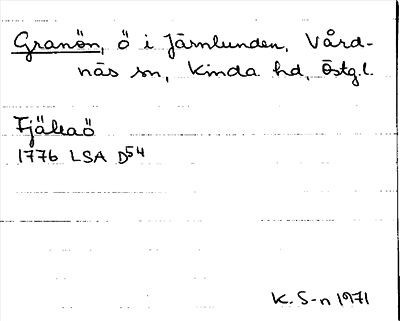 Granön, ö i Järnlunden, Vård-
näs sn, Kinda hd, Östg.l.
Fjälkaö
1776 LSA D54
K. S-n 1971